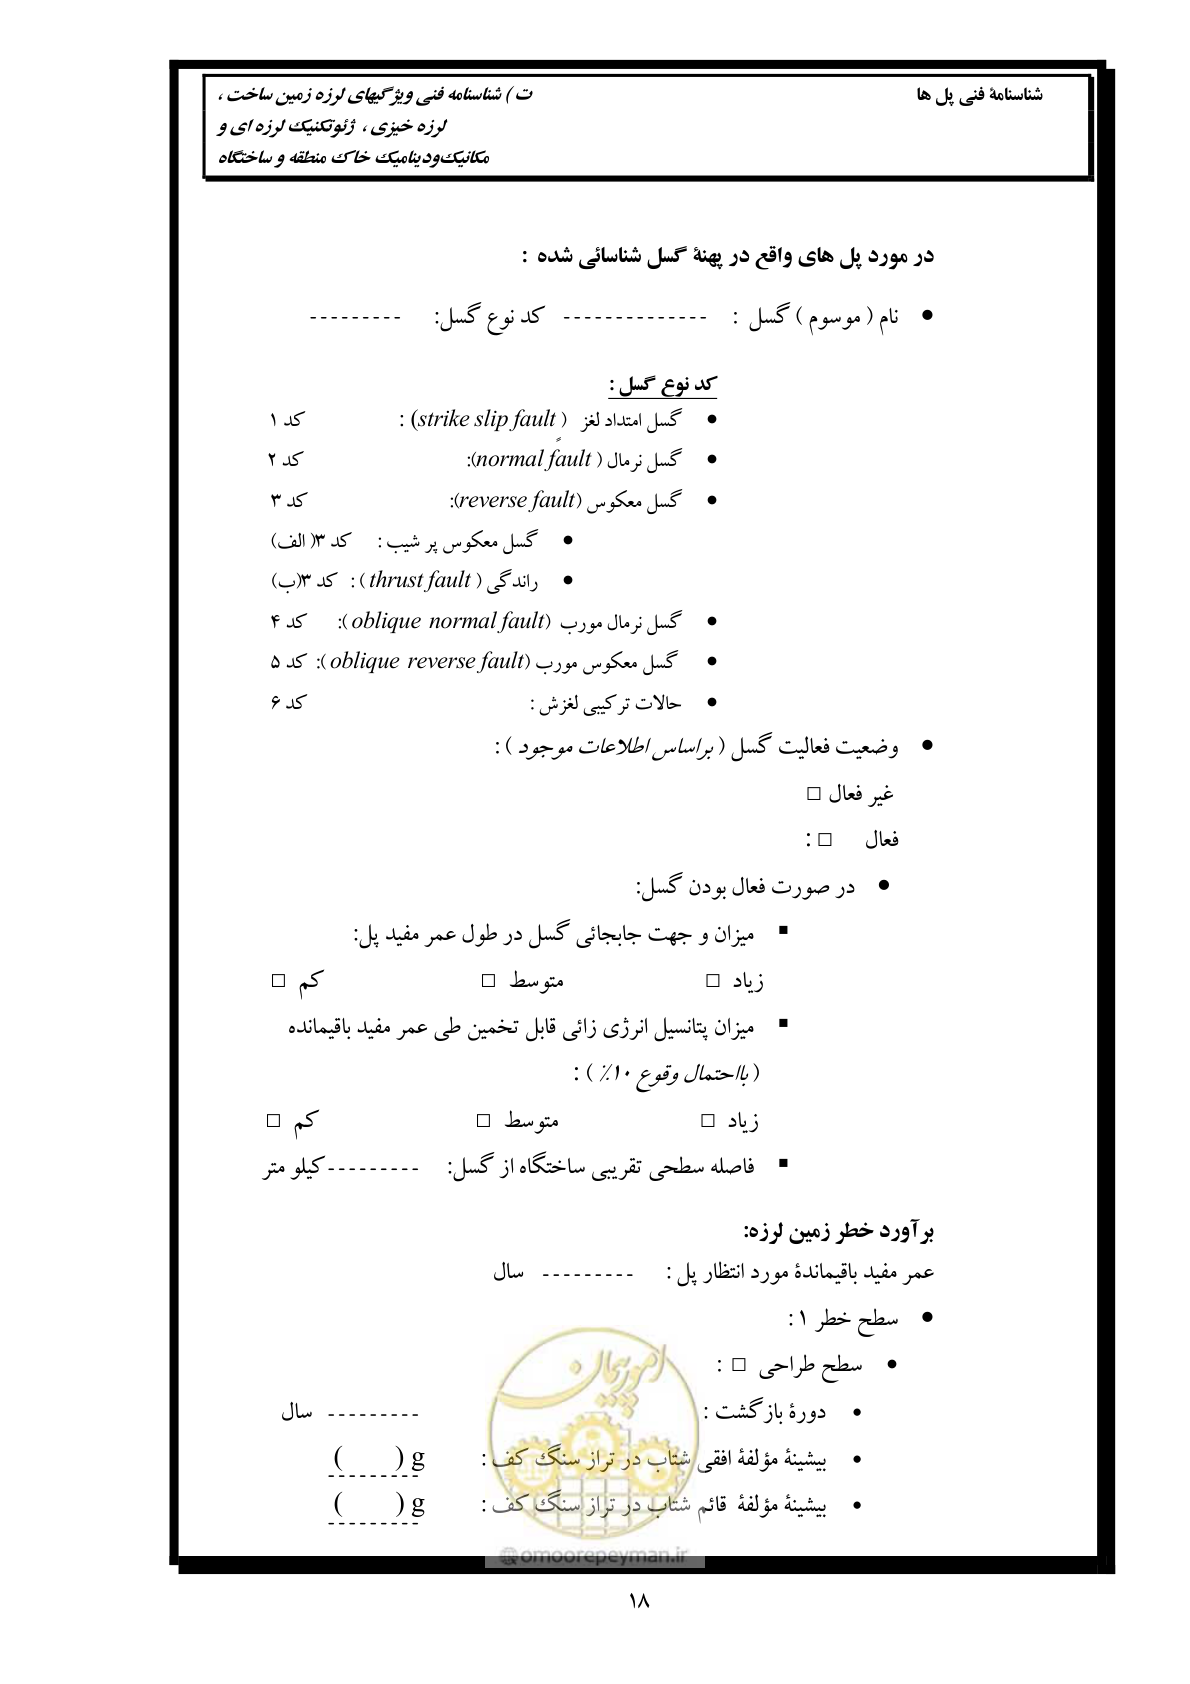 شناسنامۀ فنی پل ها
ت ) شناسنامه فنی ویژگیهای لرزه زمین ساخت ،
لرزه خیزی ، ژئوتکنیک لرزه ای و
مکانیک‌ودینامیک خاک منطقه و ساختگاه
در مورد پل های واقع در پهنۀ گسل شناسائی شده :
● نام ( موسوم ) گسل : -------------- کد نوع گسل: ---------
کد نوع گسل :
● گسل امتداد لغز ( strike slip fault) : کد ۱
● گسل نرمال ( normal fault): کد ۲
● گسل معکوس (reverse fault): کد ۳
● گسل معکوس پر شیب : کد ۳( الف)
● راندگی ( thrust fault ) : کد ۳(ب)
● گسل نرمال مورب (oblique normal fault ): کد ۴
● گسل معکوس مورب (oblique reverse fault ): کد ۵
● حالات ترکیبی لغزش : کد ۶
● وضعیت فعالیت گسل ( براساس اطلاعات موجود ) :
غیر فعال □
فعال □ :
● در صورت فعال بودن گسل:
▪ میزان و جهت جابجائی گسل در طول عمر مفید پل:
زیاد □ متوسط □ کم □
▪ میزان پتانسیل انرژی زائی قابل تخمین طی عمر مفید باقیمانده
( بااحتمال وقوع ۱۰٪ ) :
زیاد □ متوسط □ کم □
▪ فاصله سطحی تقریبی ساختگاه از گسل: ---------کیلو متر
برآورد خطر زمین لرزه:
عمر مفید باقیماندۀ مورد انتظار پل : --------- سال
● سطح خطر ۱ :
● سطح طراحی □ :
● دورۀ بازگشت : --------- سال
● بیشینۀ مؤلفۀ افقی شتاب در تراز سنگ کف : ( ) g
---------
● بیشینۀ مؤلفۀ قائم شتاب در تراز سنگ کف : ( ) g
---------
امور پیمان
@omoorepeyman.ir
۱۸